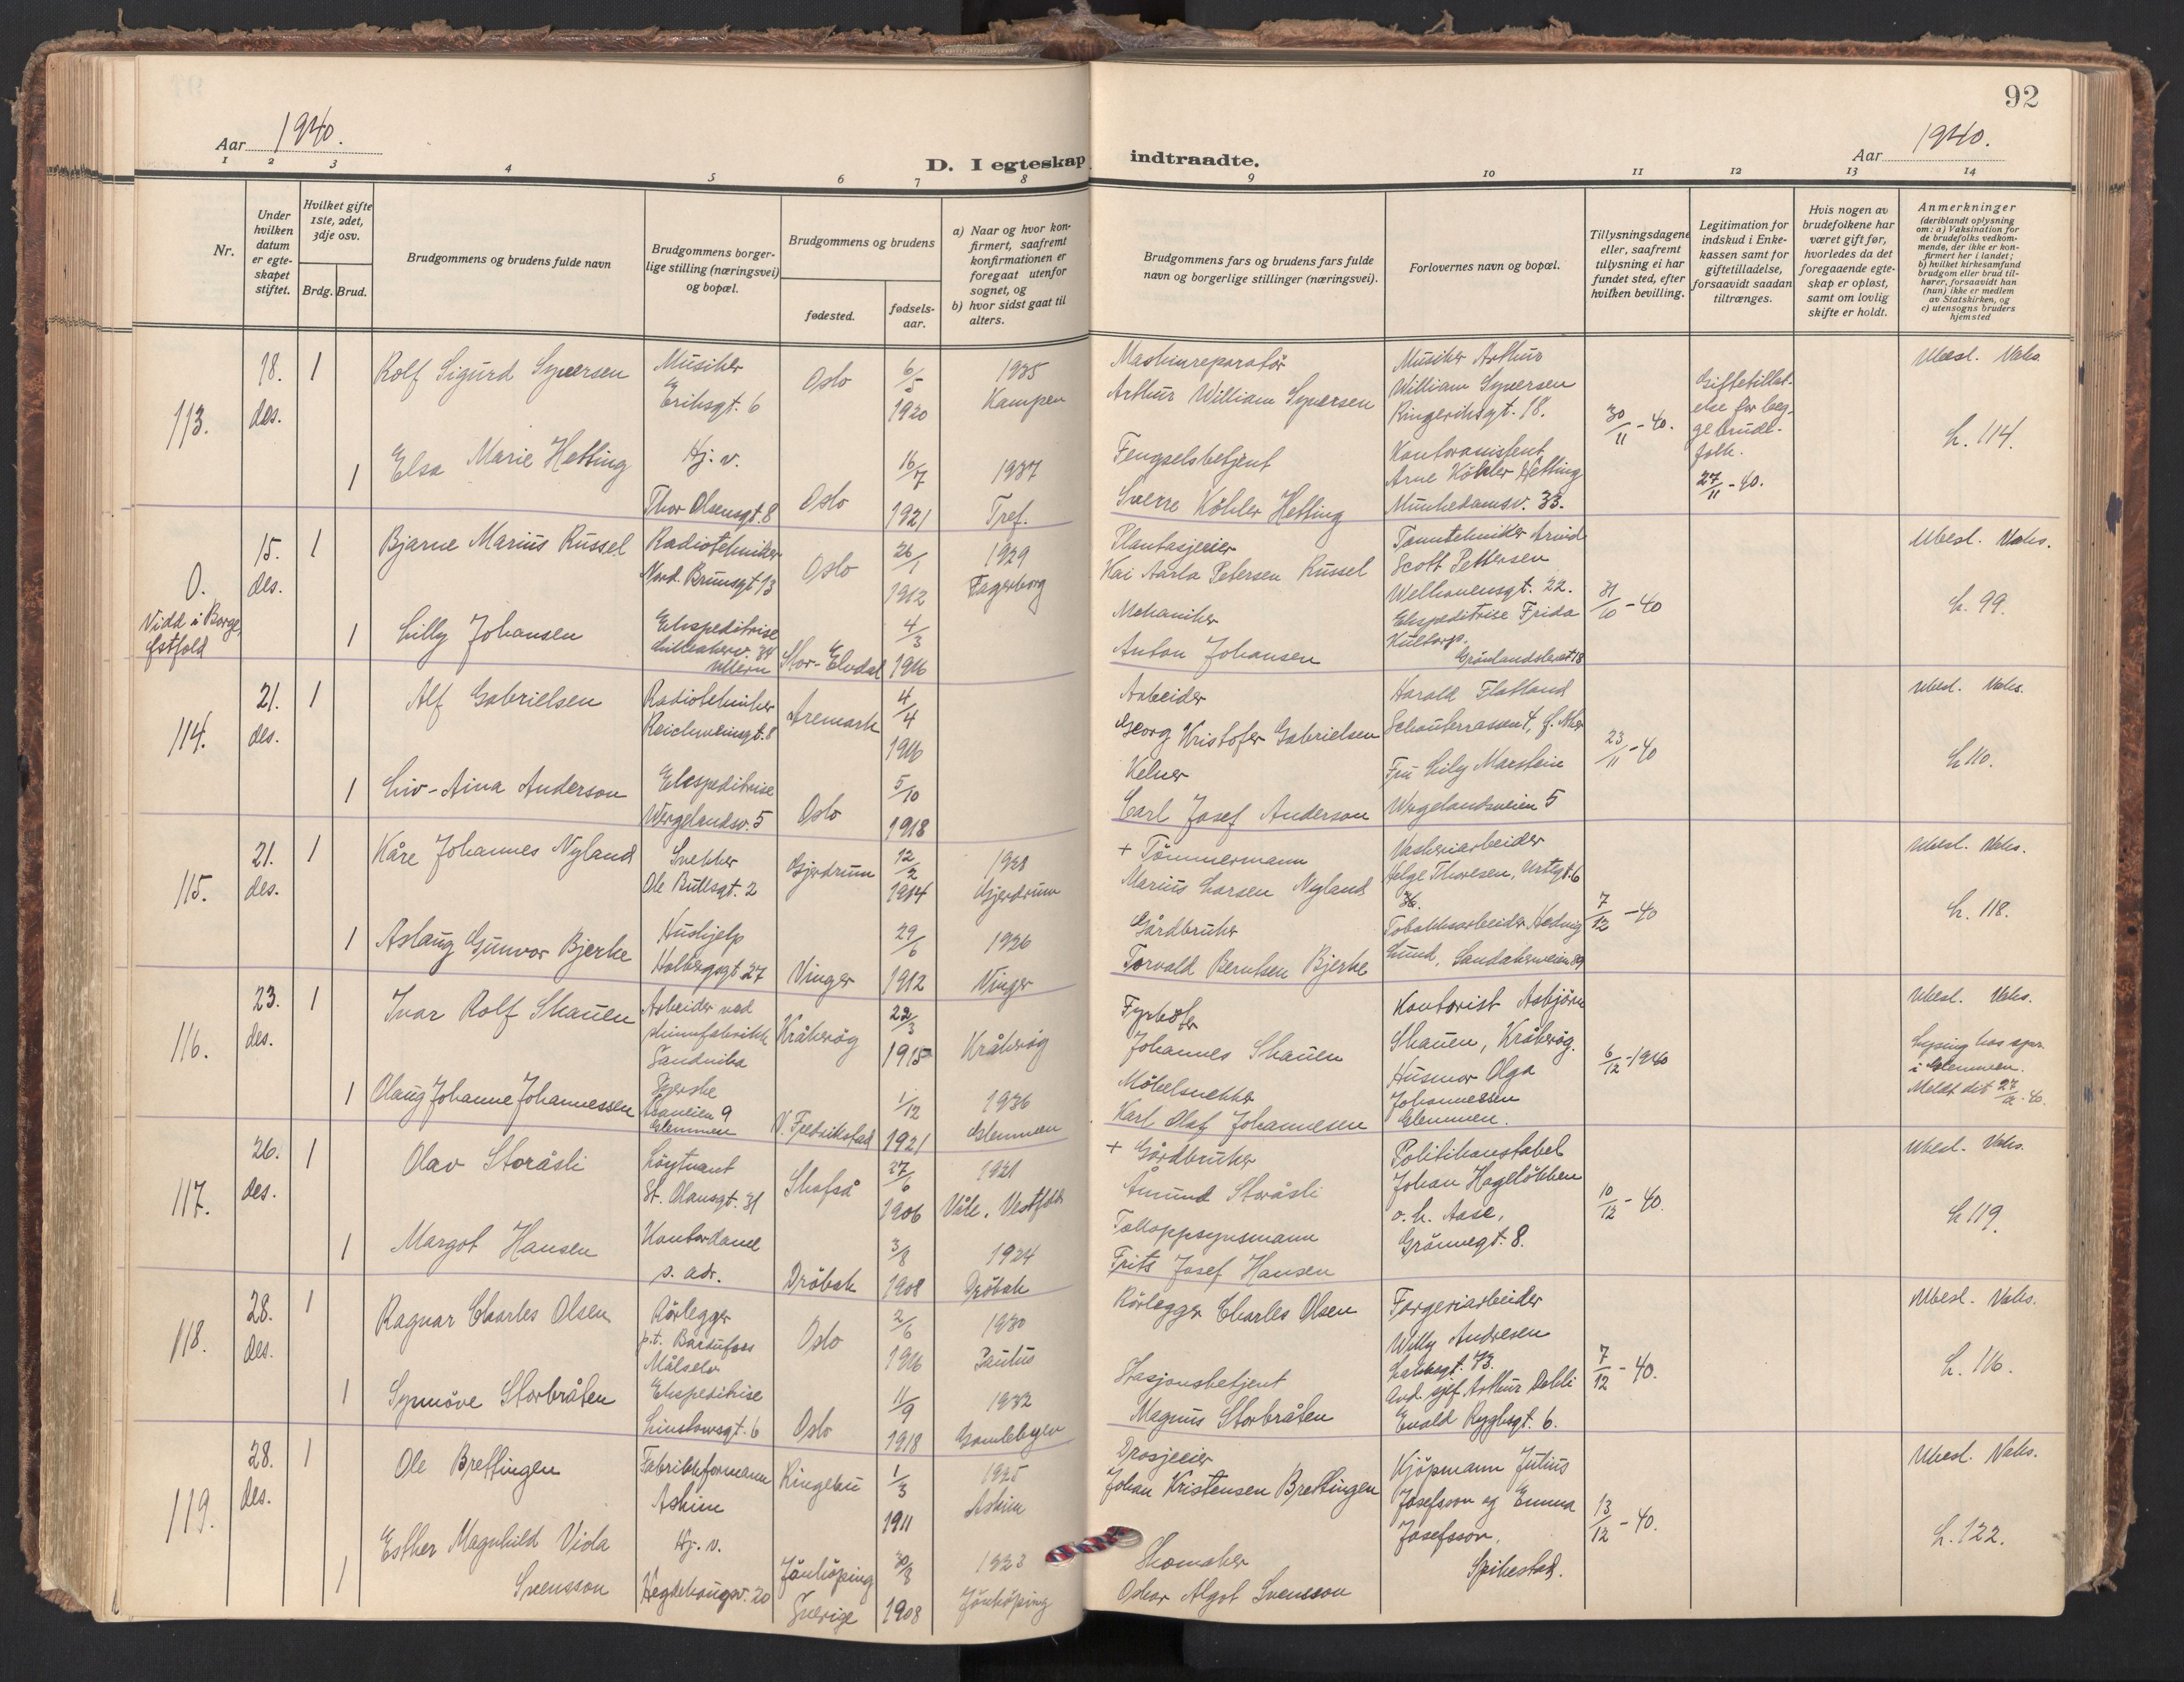 92
Aar 1940.
D. I egteskap indtraadte.
Aar 1940.
1 2 3 4 5 6 7 8 9 10 11 12 13 14
Nr.
Under hvilken datum er egteskapet stiftet.
Hvilket gifte 1ste, 2det, 3dje osv.
Brdg. Brud.
Brudgommens og brudens fulde navn
Brudgommens borgerlige stilling (næringsvei) og bopæl.
Brudgommens og brudens
fødested.
fødselsaar.
a) Naar og hvor konfirmert, saafremt konfirmationen er foregaat utenfor sognet, og
b) hvor sidst gaat til alters.
Brudgommens fars og brudens fars fulde navn og borgerlige stillinger (næringsvei).
Forlovernes navn og bopæl.
Tillysningsdagene eller, saafremt tillysning ei har fundet sted, efter hvilken bevilling.
Legitimation for indskud i Enkekassen samt for giftetilladelse, forsaavidt saadan tiltrænges.
Hvis nogen av brudefolkene har været gift før, hvorledes da det foregaaende egteskap er opløst, samt om lovlig skifte er holdt.
Anmerkninger
(deriblandt oplysning om: a) Vaksination for de brudefolks vedkommende, der ikke er konfirmert her i landet; b) hvilket kirkesamfund brudgom eller brud tilhører, forsaavidt han (hun) ikke er medlem av Statskirken, og c) utensogns bruders hjemsted
113.
18. des.
1
Rolf Sigurd Syversen
Musiker
Eriksgt. 6
Oslo
6/5 1920
1935
Kampen
Maskinreparatør
Arthur William Syversen
Musiker Arthur
William Syversen
Ringeriksgt. 18.
30/11 - 40.
Giftetillat-
else for beg-
ge brude-
folk.
27/11 - 40.
Ubesl. Vaks.
L. 114.
1
Elsa Marie Hetting
Hj. v.
Thor Olsensgt. 8
Oslo
16/7 1921
1937
Tref.
Fengselsbetjent
Sverre Köhler Hetting
Kontorassistent
Arne Köhler Hetting
Munkedamsv. 33.
0.
Vidd i Borge,
Østfold
15. des.
1
Bjarne Marius Russel
Radiotekniker
Nord. Brunsgt 13
Oslo
26/1 1912
1929
Fagerborg
Plantasjeeier
Kai Aarla Petersen Russel
Tanntekniker Arvid
Scott Pettersen
Welhavensgt. 22.
31/10 - 40
Ubesl. Vaks.
L. 99.
1
Lilly Johansen
Ekspeditrise
Lilleakerv. 34
Ullern
Stor-Elvdal
4/3 1916
Mekaniker
Anton Johansen
Ekspeditrise Frida
Kultorp.
Grønlandsleret 18
114.
21. des.
1
Alf Gabrielsen
Radiotekniker
Reichweinsgt. 8
Aremark
4/4 1916
Arbeider
Georg Kristofer Gabrielsen
Harald Flatland
Schouterrassen 4, f. Aker
23/11 - 40
Ubesl. Vaks.
L 110.
1
Liv-Aina Anderson
Ekspeditrise
Wergelandsv. 5
Oslo
5/10 1918
Kelner
Carl Josef Anderson
Fru Lily Marstein
Wergelandsveien 5
115.
21. des.
1
Kåre Johannes Nyland
Snekker
Ole Bullsgt. 2
Gjerdrum
12/2 1914
1928
Gjerdrum
+ Tømmermann
Marius Larsen Nyland
Vaskeriarbeider
Helge Thoresen, Urtegt. 6
36.
7/12 - 40
Ubesl. Vaks.
L. 118.
1
Aslaug Gunvor Bjerke
Hushjelp
Holbergsgt 27
Vinger
29/6 1912
1926
Vinger
Gårdbruker
Torvald Berntsen Bjerke
Tobakksarbeider Hedvig
Lund, Sandakerveien 89
116.
23. des.
1
Ivar Rolf Skauen
Arbeider ved
skinnfabrikk
Sandvika
Kråkerøy
22/3 1915
Kråkerøy
Fyrbøter
Johannes Skauen
Kontorist Asbjørn
Skauen, Kråkerøy.
6/12 - 1940
Ubesl. Vaks.
Lysning hos spr.
i Glemmen.
Meldt dit 27/12 - 40.
1
Olaug Johanne Johannessen
Syerske
Glemmen
V. Fredrikstad
1/12 1921
1936
Glemmen
Møbelsnekker
Karl Olaf Johannesen
Husmor Olga
Johannessen
Glemmen.
117.
26. des.
1
Olav Storåsli
Løytnant
St. Olavsgt. 31
Skafså
27/6 1906
1921
Våle, Vestfold
+ Gårdbruker
Åmund Storåsli
Politikonstabel
Johan Hageløkken
o. h. Aase,
Grønnegt. 8.
10/12 - 40.
Ubesl. Vaks.
L 119.
1
Margot Hansen
Kontordame
s. adr.
Drøbak
3/8 1908
1924
Drøbak
Tolloppsynsmann
Frits Josef Hansen
118.
28. des.
1
Ragnar Charles Olsen
Rørlegger
p.t. Bardufoss
Målselv
Oslo
2/6 1916
1930
Paulus
Rørlegger Charles Olsen
Fargeriarbeider
Willy Andresen
Lakkegt. 73.
7/12 - 40.
Ubesl. Vaks.
L. 116.
1
Synnöve Storbråten
Ekspeditrise
Linstowsgt. 6
Oslo
11/9 1918
1932
Gamlebyen
Stasjonsbetjent
Magnus Storbråten
Avd. sjef Arthur Dahli
Evald Ryghsgt. 6.
119.
28. des.
1
Ole Brettingen
Fabrikkformann
Askim
Ringebu
1/3 1911
1925
Askim
Drosjeeier
Johan Kristensen Brettingen
Kjøpmann Julius
Josefsson og Emma
Josefsson,
Spikestad.
13/12 - 40.
Ubesl. Vaks.
L. 122.
1
Esther Magnhild Viola
Svensson
Hj. v.
Hegdehaugsv. 20
Jönköping
Sverige
30/8 1908
1923
Jönköping
Skomaker
Oskar Algot Svensson